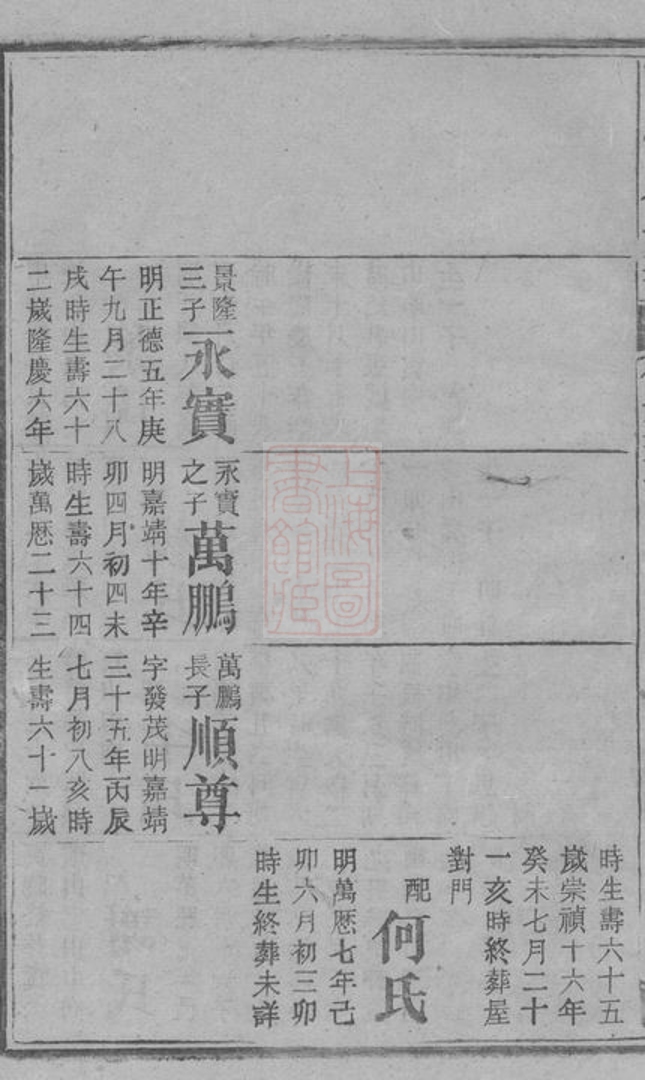 景隆
三子
永實
明正德五年庚
午九月二十八
戌時生壽六十
二歲隆慶六年
永實
之子
萬鵬
明嘉靖十年辛
卯四月初四未
時生壽六十四
歲萬歷二十三
萬鵬
長子
順尊
字發茂明嘉靖
三十五年丙辰
七月初八亥時
生壽六十一歲
時生壽六十五
歲崇禎十六年
癸未七月二十
一亥時終葬屋
對門
配
何氏
明萬歷七年己
卯六月初三卯
時生終葬未詳
上海圖
書館藏